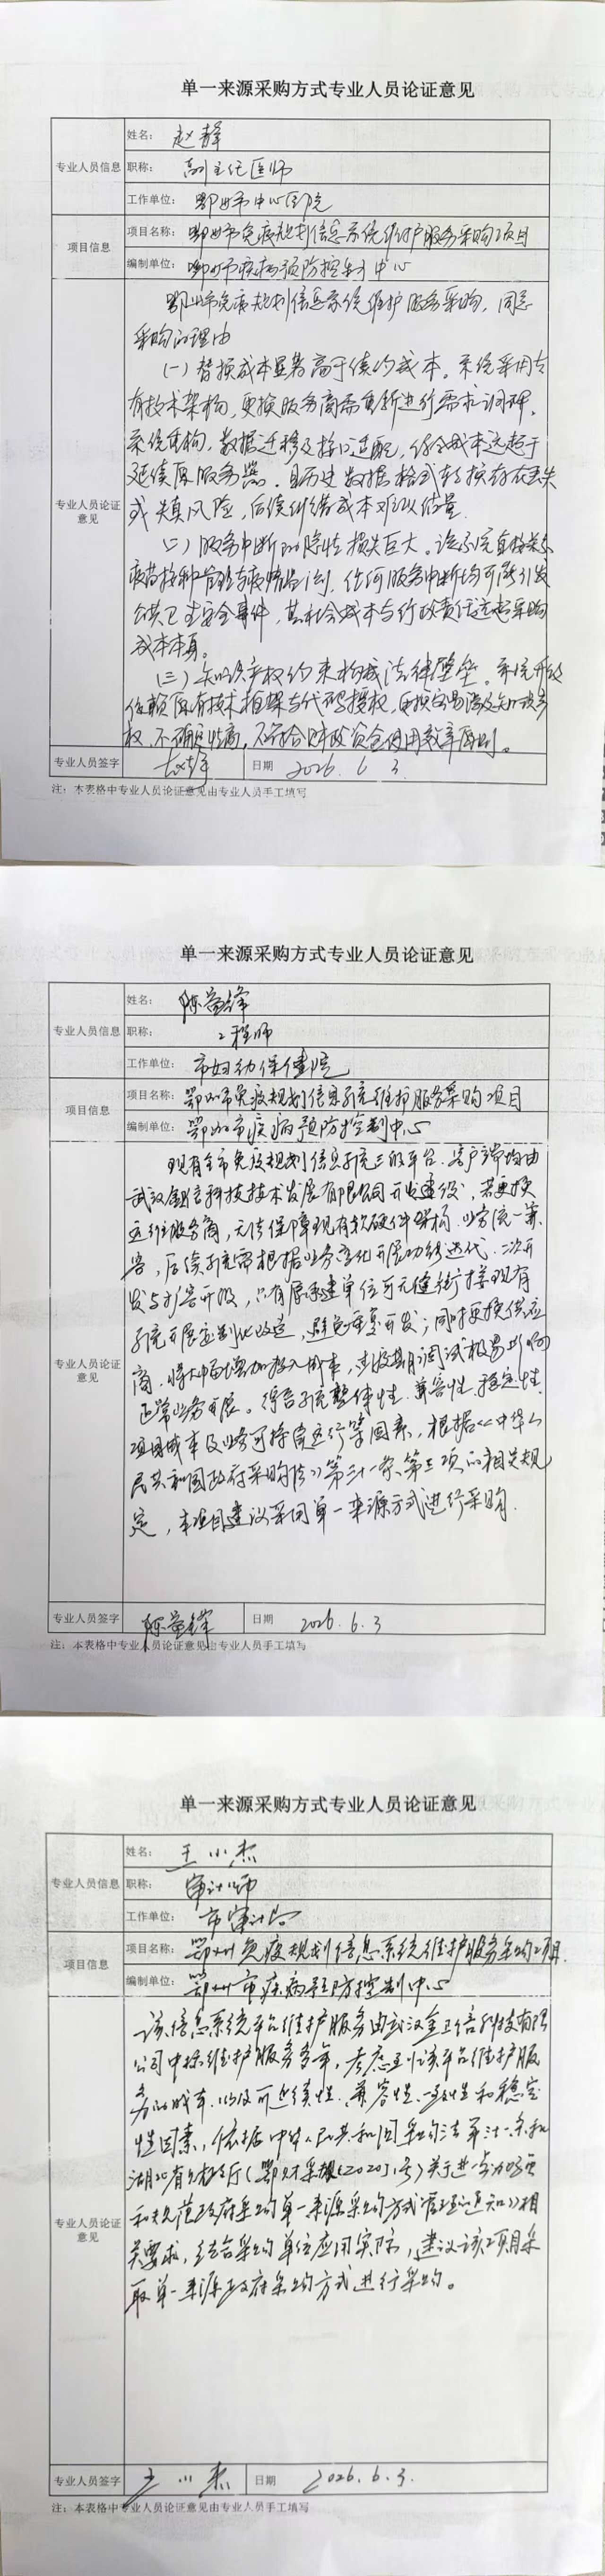 单一来源采购方式专业人员论证意见
专业人员信息
姓名：赵静
职称：副主任医师
工作单位：鄂州市中心医院
项目信息
项目名称：鄂州市免疫规划信息系统维护服务采购项目
编制单位：鄂州市疾病预防控制中心
专业人员论证意见
鄂州市免疫规划信息系统维护服务采购，同意
采购的理由
(一)替换成本显著高于续约成本。系统采用专
有技术架构，更换服务商需重新进行需求调研、
系统重构、数据迁移及接口适配，综合成本远超于
延续原服务器，且历史数据格式转换存在丢失
或失真风险，后续纠错成本难以估量
(二)服务中断的隐性损失巨大。该系统直接关系
疫苗接种管理与疫情，任何服务中断均可能引发
公共卫生安全事件，其社会成本与行政责任远超采购
成本本身。
(三)知识产权约束构成法律壁垒。系统升级
依赖原有技术框架与代码授权，更换容易涉及知识产
权，不确定性高，不符合财政资金使用效率原则。
专业人员签字 赵静 日期 2026.6.3
注：本表格中专业人员论证意见由专业人员手工填写
单一来源采购方式专业人员论证意见
专业人员信息
姓名：陈
职称：工程师
工作单位：市妇幼保健院
项目信息
项目名称：鄂州市免疫规划信息系统维护服务采购项目
编制单位：鄂州市疾病预防控制中心
专业人员论证意见
现有全市免疫规划信息系统的平台、客户端均由
武汉金卫信科技技术发展有限公司开发建设，若更换
运维服务商，无法保障现有软硬件架构、业务统一兼
容，后续系统需根据业务变化开展功能迭代、二次开
发与扩容开放，只有原承建单位可无缝衔接现有
系统开展定制化改造，避免重复开发；同时更换供应
商，将大幅增加投入成本，长期调试极易影响
正常业务开展。综合系统整体性、兼容性、稳定性、
项目成本及业务可持续运行等因素，根据《中华人
民共和国政府采购法》第三十一条、第三项的相关规
定，本项目建议采用单一来源方式进行采购.
专业人员签字 陈 日期 2026.6.3
注：本表格中专业人员论证意见由专业人员手工填写
单一来源采购方式专业人员论证意见
专业人员信息
姓名：王小杰
职称：审计师
工作单位：市审计局
项目信息
项目名称：鄂州免疫规划信息系统维护服务采购项目.
编制单位：鄂州市疾病预防控制中心
专业人员论证意见
该信息系统平台维护服务由武汉金卫信科技有限
公司中标维护服务多年，考虑到该平台维护服
务的成本、以及可延续性、兼容性、一致性和稳定
性因素，依据中华人民共和国采购法第三十一条和
湖北省财政厅(鄂财采规〔2020〕1号)关于进一步加强
和规范政府采购单一来源采购方式管理的通知》相
关要求，结合采购单位应用实际，建议该项目采
取单一来源政府采购方式进行采购。
专业人员签字 王小杰 日期 2026.6.3.
注：本表格中专业人员论证意见由专业人员手工填写